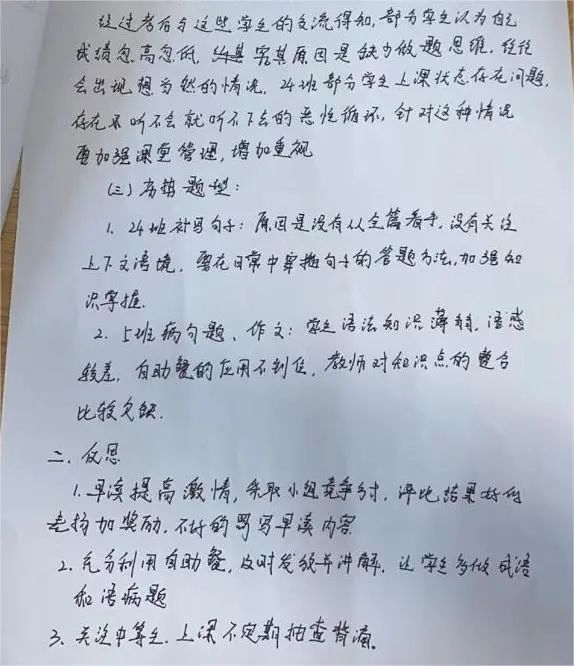 经过考后与这些学生的交流得知,部分学生认为自己
成绩忽高忽低,究其原因是缺少做题思维,往往
会出现想当然的情况。24班部分学生上课状态存在问题,
存在不听不会就听不下去的恶性循环,针对这种情况
要加强课堂管理,增加重视
(三)考辨题型:
1. 24班补写句子:原因是没有从全篇着手,没有关注
上下文语境,要在日常中穿插句子的答题方法,加强知
识掌握.
2. 5班病句题、作文:学生语法知识薄弱,语感
较差,自助餐的应用不到位,教师对知识点的整合
比较欠缺.
二、反思
1. 早读提高激情,采取小组竞争,评比结果好
差扬加奖励,不好的罚写早读内容
2. 充分利用自助餐,及时发放并讲解,让学生多做成语
和语病题
3. 关注中等生,上课不定期抽查背诵.